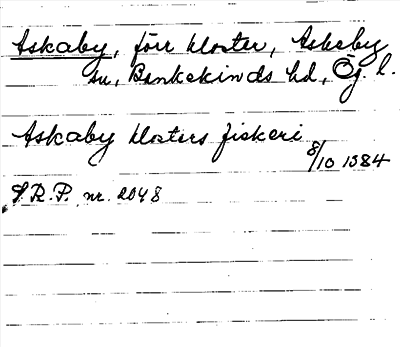 Askaby, förr kloster, Askeby
sn, Bankekinds hd, Ög. l.
Askaby klosters fiskeri 8/10 1384
S.R.P. nr. 2048